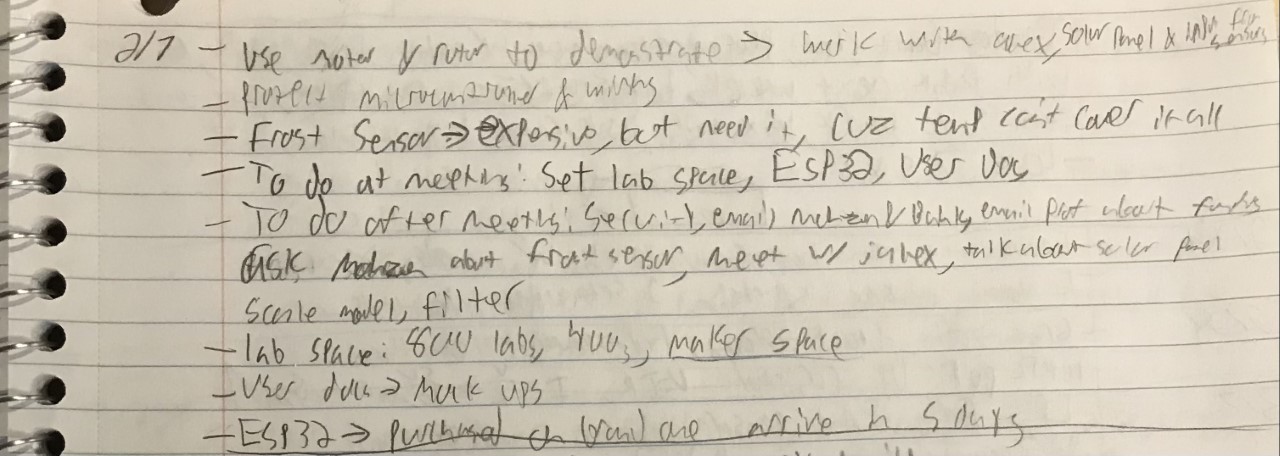 2/7 - Use motor & rotor to demonstrate → work with apex, solar panel & for sensors
- Protect & wiring
- Frost Sensor → expensive, but need it, cuz temp can't cover it all
- To do at meeting: Set lab space, ESP32, User Doc
- To do after meeting: Security, email & email about funds
Ask about frost sensor, meet w/ , talk about solar panel
Scale model, filter
- lab space: 800 labs, 400s, maker space
- User docs → mock ups
- ESP32 → purchased one arrive in 5 days